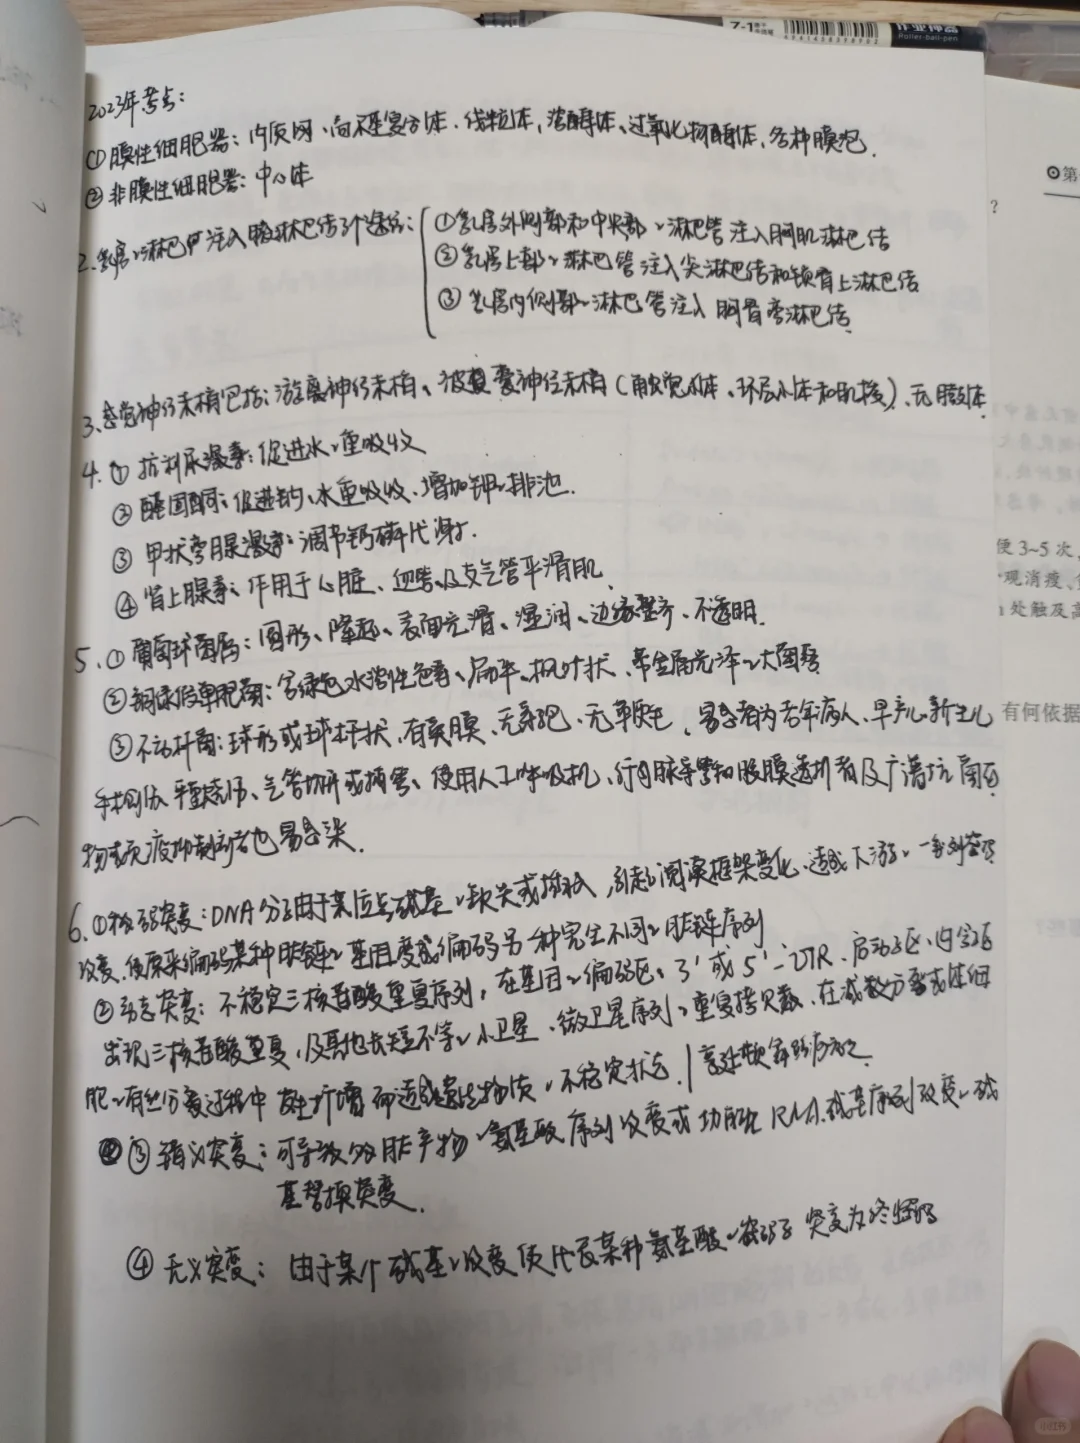 Z-1
6941428898902
作业神器
Roller-ball-pen
2023年考点:
①膜性细胞器:内质网、高尔基复合体、线粒体、溶酶体、过氧化物酶体、各种膜泡.
②非膜性细胞器:中心体
2、乳房淋巴可注入腋淋巴结3个途径:
①乳房外侧部和中央部、淋巴管注入胸肌淋巴结
②乳房上部、淋巴管注入尖淋巴结和锁骨上淋巴结
③乳房内侧部、淋巴管注入胸骨旁淋巴结.
3、感觉神经末梢包括:游离神经末梢、被囊神经末梢(触觉小体、环层小体和肌梭)、
4.①抗利尿激素:促进水、重吸收
②醛固酮:促进钠、水重吸收、增加钾、排泄.
③甲状旁腺激素:调节钙磷代谢.
④肾上腺素:作用于心脏、血管、及支气管平滑肌
5、①葡萄球菌属:圆形、隆起、表面光滑、湿润、边缘整齐、不透明.
②铜绿假单胞菌:含绿色水溶性色素、扁平、枫叶状、带金属光泽、大菌落
③不动杆菌:球形或球杆状、有荚膜、无芽孢、无鞭毛,易感者为老年病人、早产儿、新生儿
手术创伤、严重烧伤、气管切开或插管、使用人工呼吸机、行静脉导管和腹膜透析者及广谱抗菌药
物或免疫抑制剂者也易感染.
6、①移码突变:DNA分子由于某位点碱基、缺失或插入,引起阅读框架变化、造成下游、一系列密码
改变、使原来编码某种肽链、基因变成编码另一种完全不同、肽链序列
②动态突变:不稳定三核苷酸重复序列,在基因、编码区、3'或5'-UTR、启动子区、内含子区
出现三核苷酸重复,及其他长短不等、小卫星、微卫星序列、重复拷贝数、在减数分裂或体细
胞、有丝分裂过程中发生扩增而造成遗传物质、不稳定状态.
③错义突变:可导致多肽产物、氨基酸序列改变或功能RNA碱基序列改变、碱
基替换突变.
④无义突变:由于某个碱基、改变使代表某种氨基酸、密码子突变为终止密码
第
?
便3~5次,
观消瘦、
处触及高
有何依据
小红书